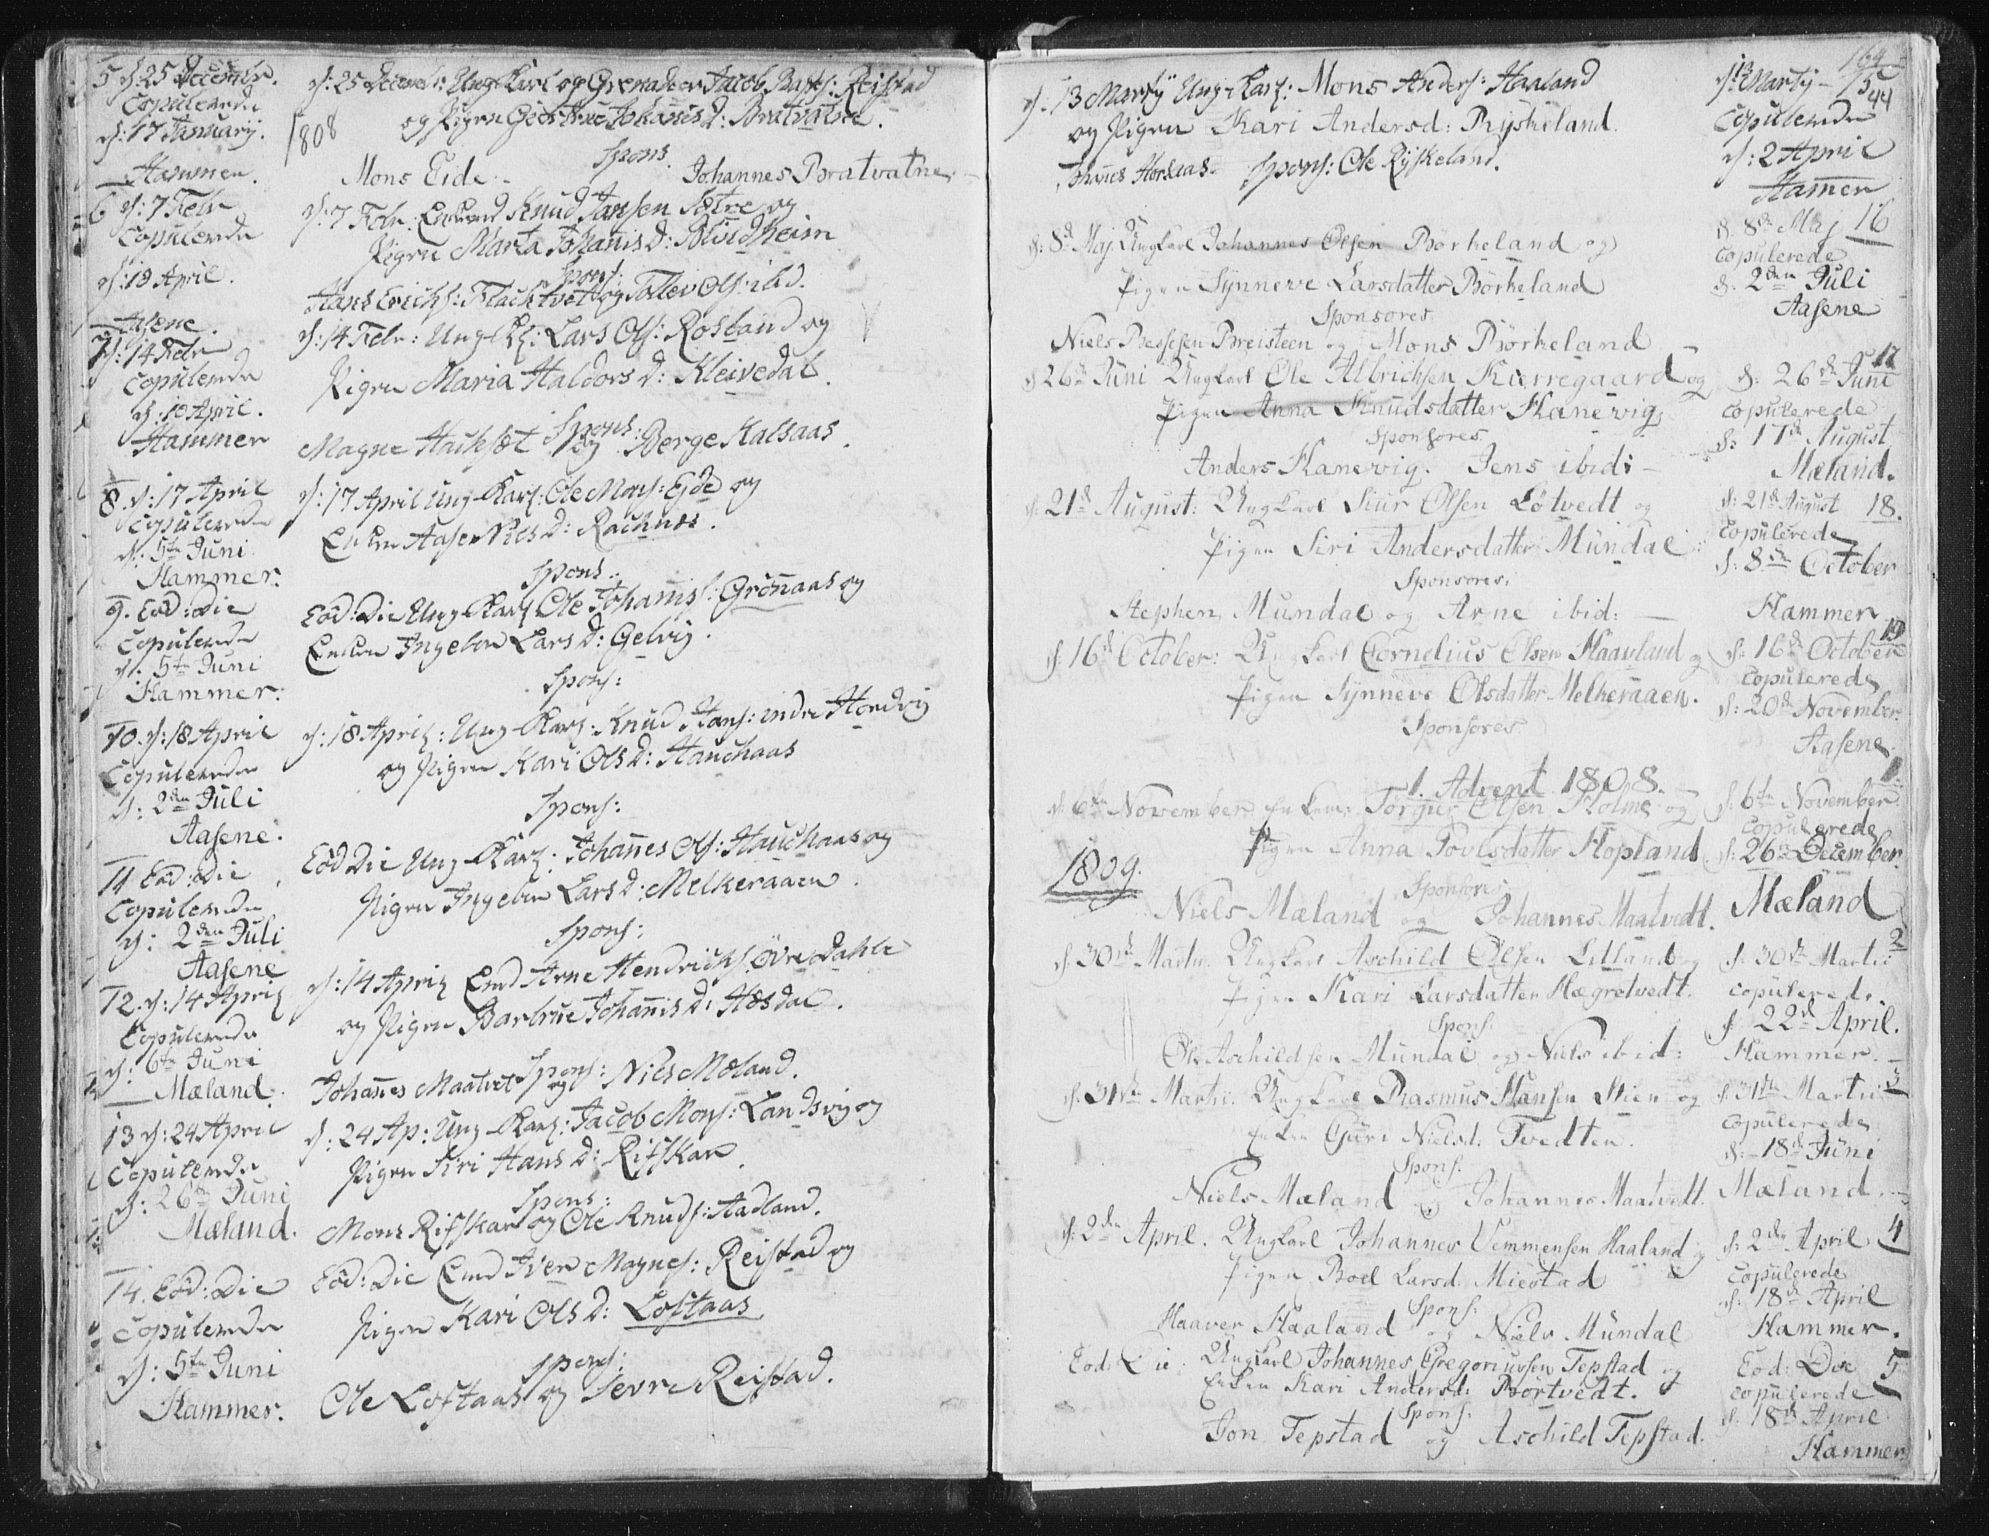 5 d: 25 Decembr.
Copulerede
d: 17 Januarij.
Hammer.
6 d: 7 Febr
Copulerede
d: 18 April.
Aasene.
7 d: 14 Febr
Copulerede
d: 10 April.
Hammer
8. d: 17 April
Copulerede
d: 5te Juni
Hammer.
9. Eod: Die
Copulerede
d: 5te Juni
Hammer.
10. d: 18 April
Copulerede
d: 2den Juli
Aasene.
11 Eod: Die
Copulerede
d: 2den Juli
Aasene
12. d: 14 April
Copulerede
d: 6te Juni
Mæland.
13 d: 24 April
Copulerede
d: 26de Juni
Mæland.
14. Eod: Die
Copulerede
d: 5te Juni
Hammer.
d: 25 Decembr: Ung Karl og Grenadeer Jacob Rasms: Reistad
1808 og Pigen Giertrue Johanisd: Bratvatne.
Spons.
Mons Eide. Johannes Bratvatne.
d: 7 Febr: Enkemd Knud Jansen Sætre og
Pigen Marta Johanisd: Blindheim
Spons:
Hans Erichs: Flachtvet og Tollev Ols: ibd.
d: 14 Febr: Ung K: Lars Ols: Rosland og
Pigen Maria Haldorsd: Kleivedal.
Spons:
Magne Hachset og Børge Kalsaas.
d: 17 April Ung Karl: Ole Mons: Ejde og
Enken Aase Nilsd: Rachnes.
Spons:
Eod: Die Ung Karl Ole Johanis: Grønaas og
Enken Ingebor Larsd: Gelvig.
Spons:
d: 18 April: Ung Karl: Knud Hans: indre Hordvig
og Pigen Kari Olsd: Hauchaas
Spons:
Eod Die Ung Karl: Johannes Ols: Hauchaas og
Pigen Ingebor Larsd: Melkeraaen.
Spons:
d: 14 April Emd Arne Hendrichs: Øvredahle
og Pigen Barbrue Johanisd: Hosdal.
Spons:
Johanes Maatvet og Niels Mæland.
d: 24 Ap: Ung Karl: Jacob Mons: Landsvig og
Pigen Siri Hansd: Rifskar.
Spons:
Mons Rifskar og Ole Knuds: Aadland.
Eod: Die Emd Iver Magnes: Reistad og
Pigen Kari Olsd: Loftaas.
Spons:
Ole Loftaas og Sevre Reistad.
d. 13 Martij Ung Karl: Mons Anders: Haaland
og Pigen Kari Andersd: Ryskeland.
Spons: Ole Ryskeland.
d: 8de Maj Ungkarl Johannes Olsen Børkeland og
Pigen Synneve Larsdatter Børkeland
Sponsores
Niels Bessesen Breisteen og Mons Børkeland
d 26de Juni Ungkarl Ole Albrichsen Kierregaard og
Pigen Anna Knudsdatter Hanevig
Sponsores
Anders Hanevig. Jens ibid:
d: 21de August: Ungkarl Siur Olsen Løtvedt og
Pigen Siri Andersdatter Mundal
Sponsores.
Stephen Mundal og Arne ibid:
d: 16de October: Ungkarl Cornelius Olsen Haavland og
Pigen Synneve Olsdatter Melkeraaen.
Sponsores
1. Advent 1808.
d: 6te November Enkem: Torgier Olsen Holme og
Pigen Anna Povlsdatter Hopland
1809.
Sponsores
Niels Mæland og Johannes Maatvedt.
d: 30te Martii. Ungkarl Aschild Olsen Litland og
Pigen Kari Larsdatter Hægretvedt.
Spons.
Ole Aschildsen Mundal og Niels ibid:
d: 31te Martii. Ungkarl Rasmus Hansen Stien og
Enken Guri Nielsd. Tvedten.
Spons.
Niels Mæland og Johannes Maatvedt.
d: 2den April. Ungkarl Johannes Vemmensen Haaland og
Pigen Boel Larsd. Miestad
Spons.
Haaver Haaland og Niels Mundal
Eod: Die: Ungkarl Johannes Gregoriussen Tepstad og
Enken Kari Andersd: Børtvedt.
Spons.
Jon Tepstad og Aschild Tepstad.
164
d: 13 Martij 15
44
Copulerede
d: 2 April
Hammer
d. 8de Maj 16
Copulerede
d. 2den Juli
Aasene
17
d: 26de Juni
Copulerede
d: 17de August
Mæland.
d: 21de August 18.
Copulerede
d: 8de October
Hammer
19
d: 16de October
Copulerede
d: 20de November.
Aasene.
1.
d: 6te November
Copulerede
d: 26de December.
Mæland
2
d: 30te Martii
Copulerede.
d 22de April.
Hammer.
d: 31te Martii 3
Copulerede
d: 18de Juni
Mæland.
d: 2den April 4
Copulerede
d: 18de April
Hammer.
Eod: Die 5
Copulerede
d. 18de April
Hammer